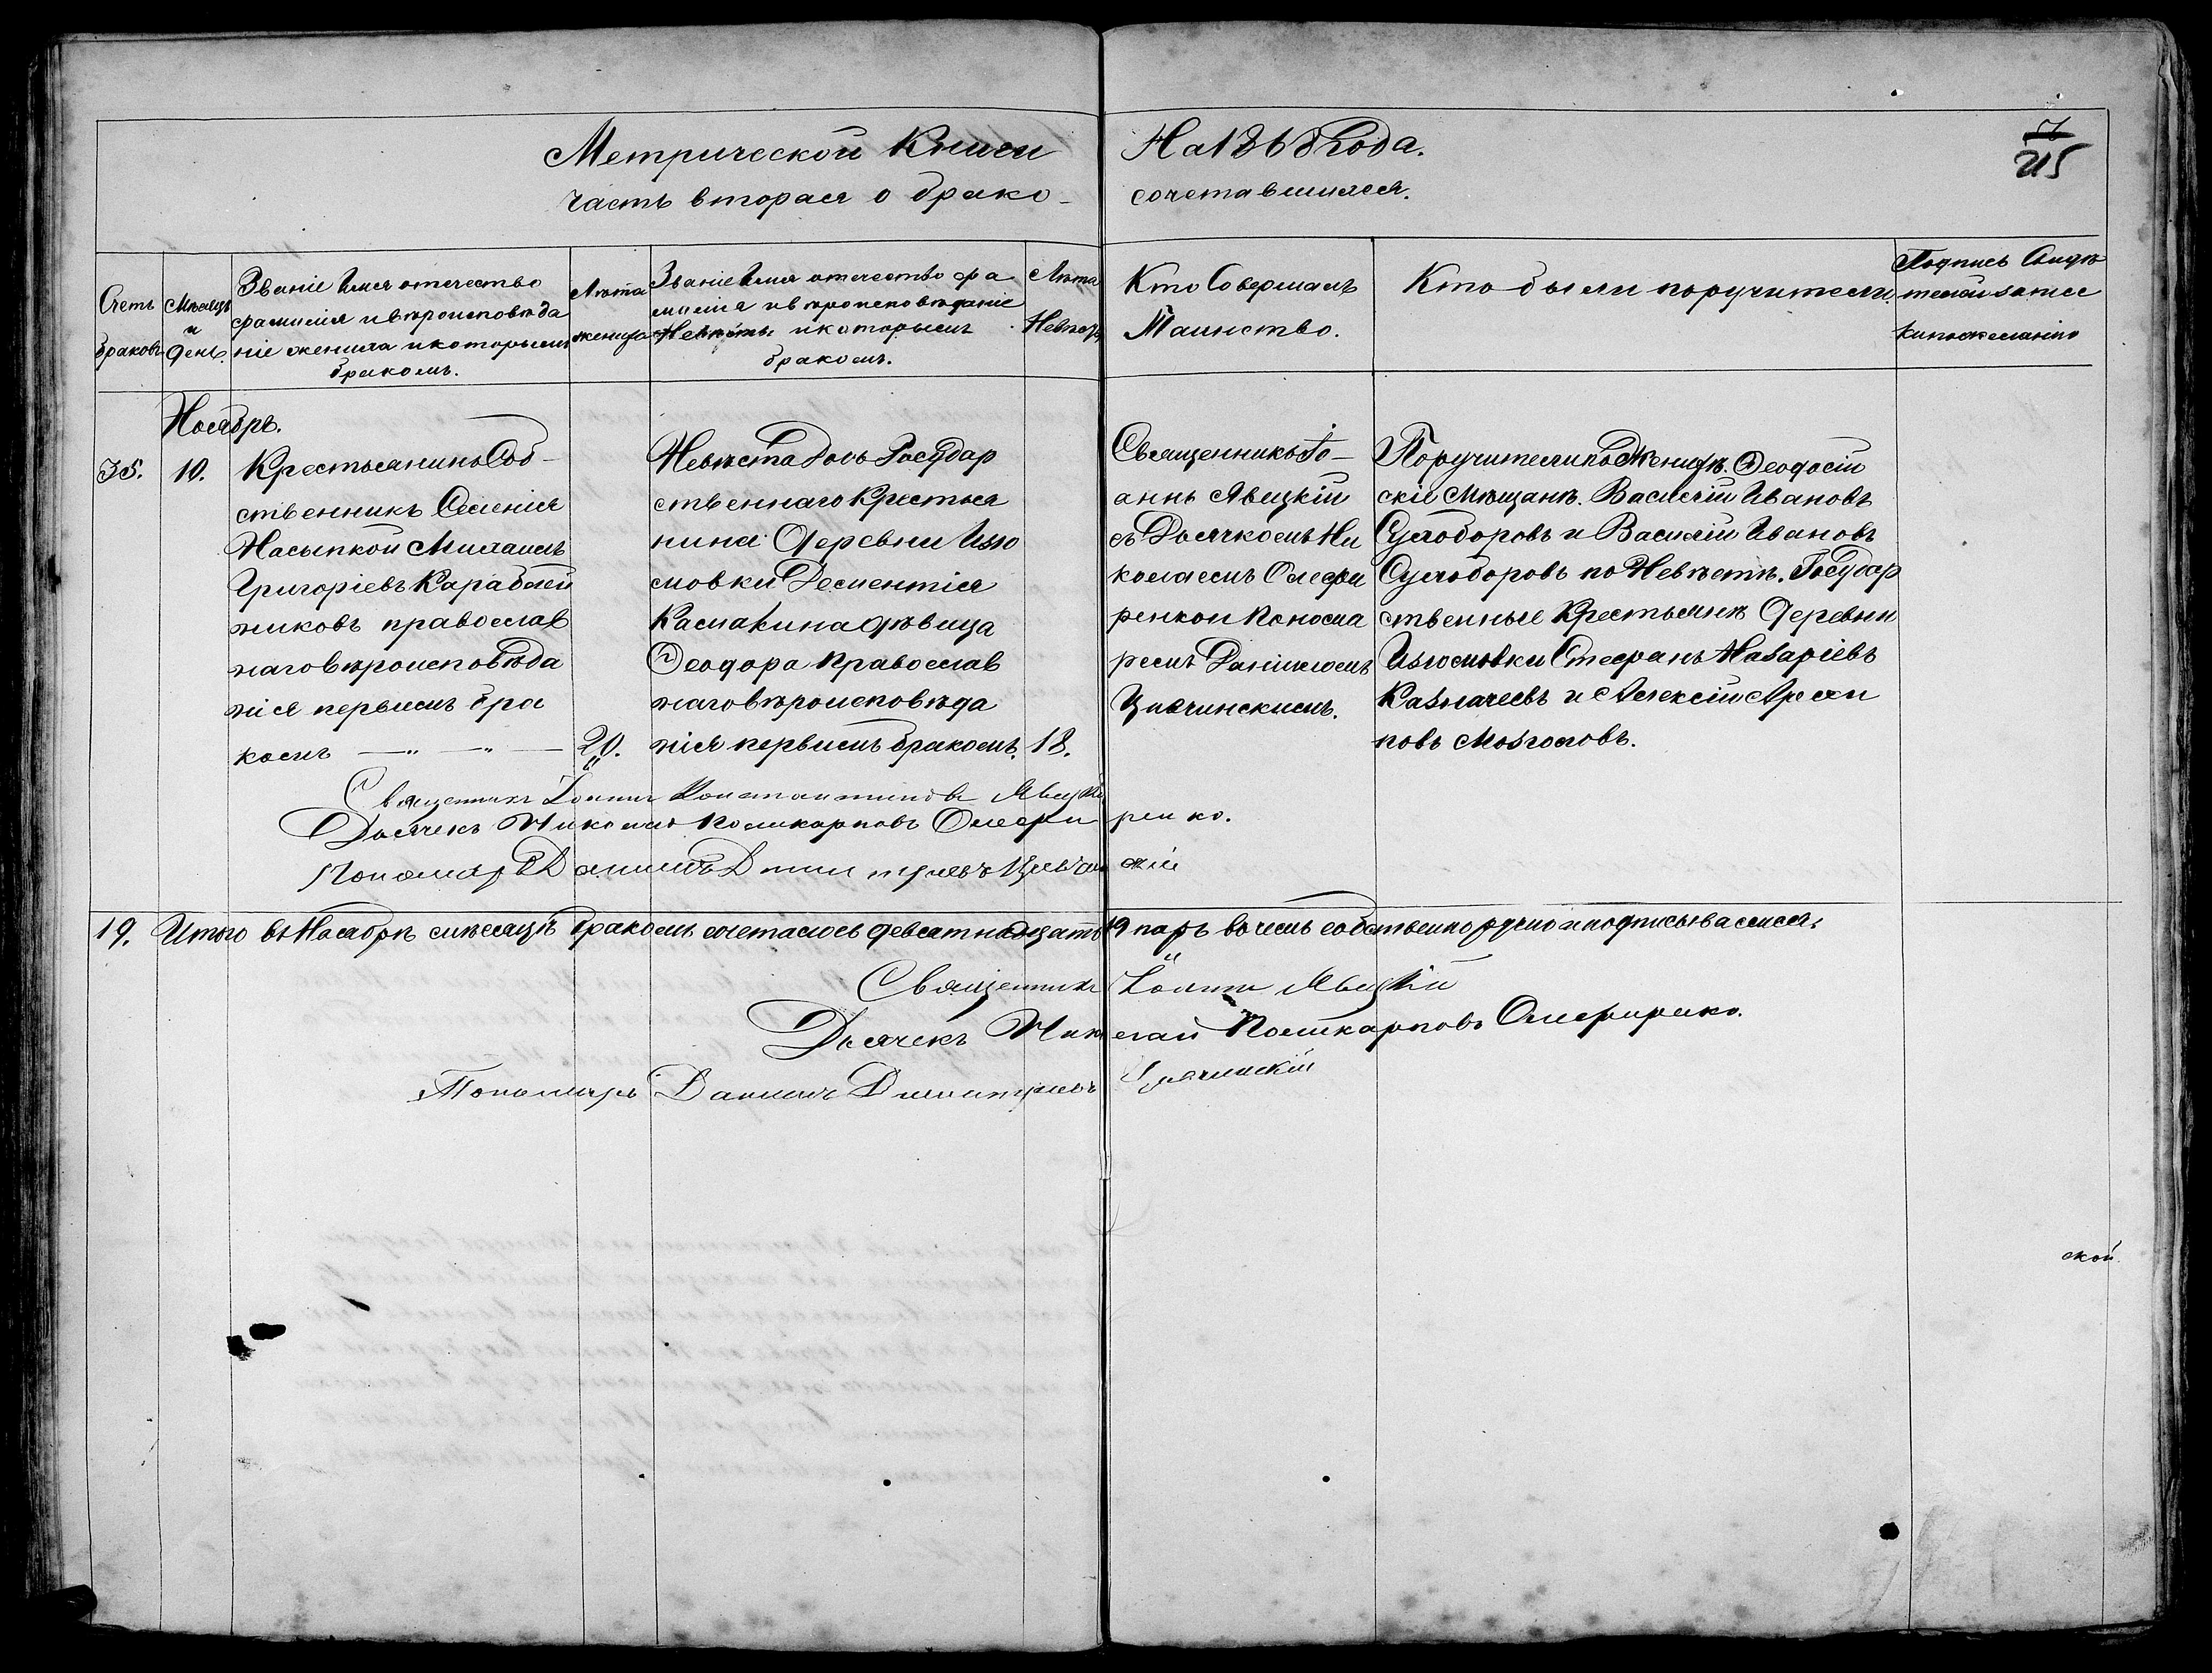 Метрической Книги На 1868 Года.
7
215
часть вторая о брако-
сочетавшихся.
Счетъ браковъ
Мѣсяцъ и день.
Званіе Имя отечество
фамилія и вѣроисповѣда
ніе жениха и которымъ
бракомъ.
Лѣта
жениха
Званіе Имя отечество фа
милія и вѣроисповѣданіе
Невѣсты и которымъ
бракомъ.
Лѣта
Невѣсты
Кто Совершалъ
Таинство.
Кто были поручители.
Подпись Свидѣ
телей записи
по желанію
Ноябрь.
35.
10.
Крестьянинъ Соб-
ственникъ Селенія
Насыпкой Михаилъ
Григоріевъ Карабей
никовъ православ
наго вѣроисповѣда
нія первымъ бра
комъ
20.
Невѣста Дочь Государ
ственнаго Крестья
нина Деревни Изю
мовки Дементія
Касиакина дѣвица
Ѳеодора православ
наго вѣроисповѣда
нія первымъ бракомъ.
18.
Священникъ Іо-
аннъ Явицкій
съ Дьячкомъ Ни
колаемъ Олефи
ренкои Поном а
ремъ Даніиломъ
Цвячинскимъ.
Поручители по Женихѣ. Ѳеодосій
скіе Мѣщанѣ. Василій Ивановъ
Сухоборовъ и Василій Ивановъ
Сухоборовъ по Невѣстѣ. Государ
ственные Крестьянѣ Деревни
Изюмовки Стефанъ Назаріевъ
Казначеевъ и Алексій Архи
повъ Мозголовъ.
Священникъ Іоаннъ Константиновъ Явицкій
Дьячекъ Николай Поликарповъ Олефиренко.
Пономарь Даниилъ Димитріевъ
19. Итого въ Ноябрѣ мѣсяцѣ бракомъ сочеталось девятнадцать 19 паръ въ чемъ собственноручно и подписываемся:
Священникъ Іоаннъ Явицкій
Дьячекъ Николай Поликарповъ Олефиренко.
Пономарь Даниилъ Димитріевъ Цвячинскій
ской